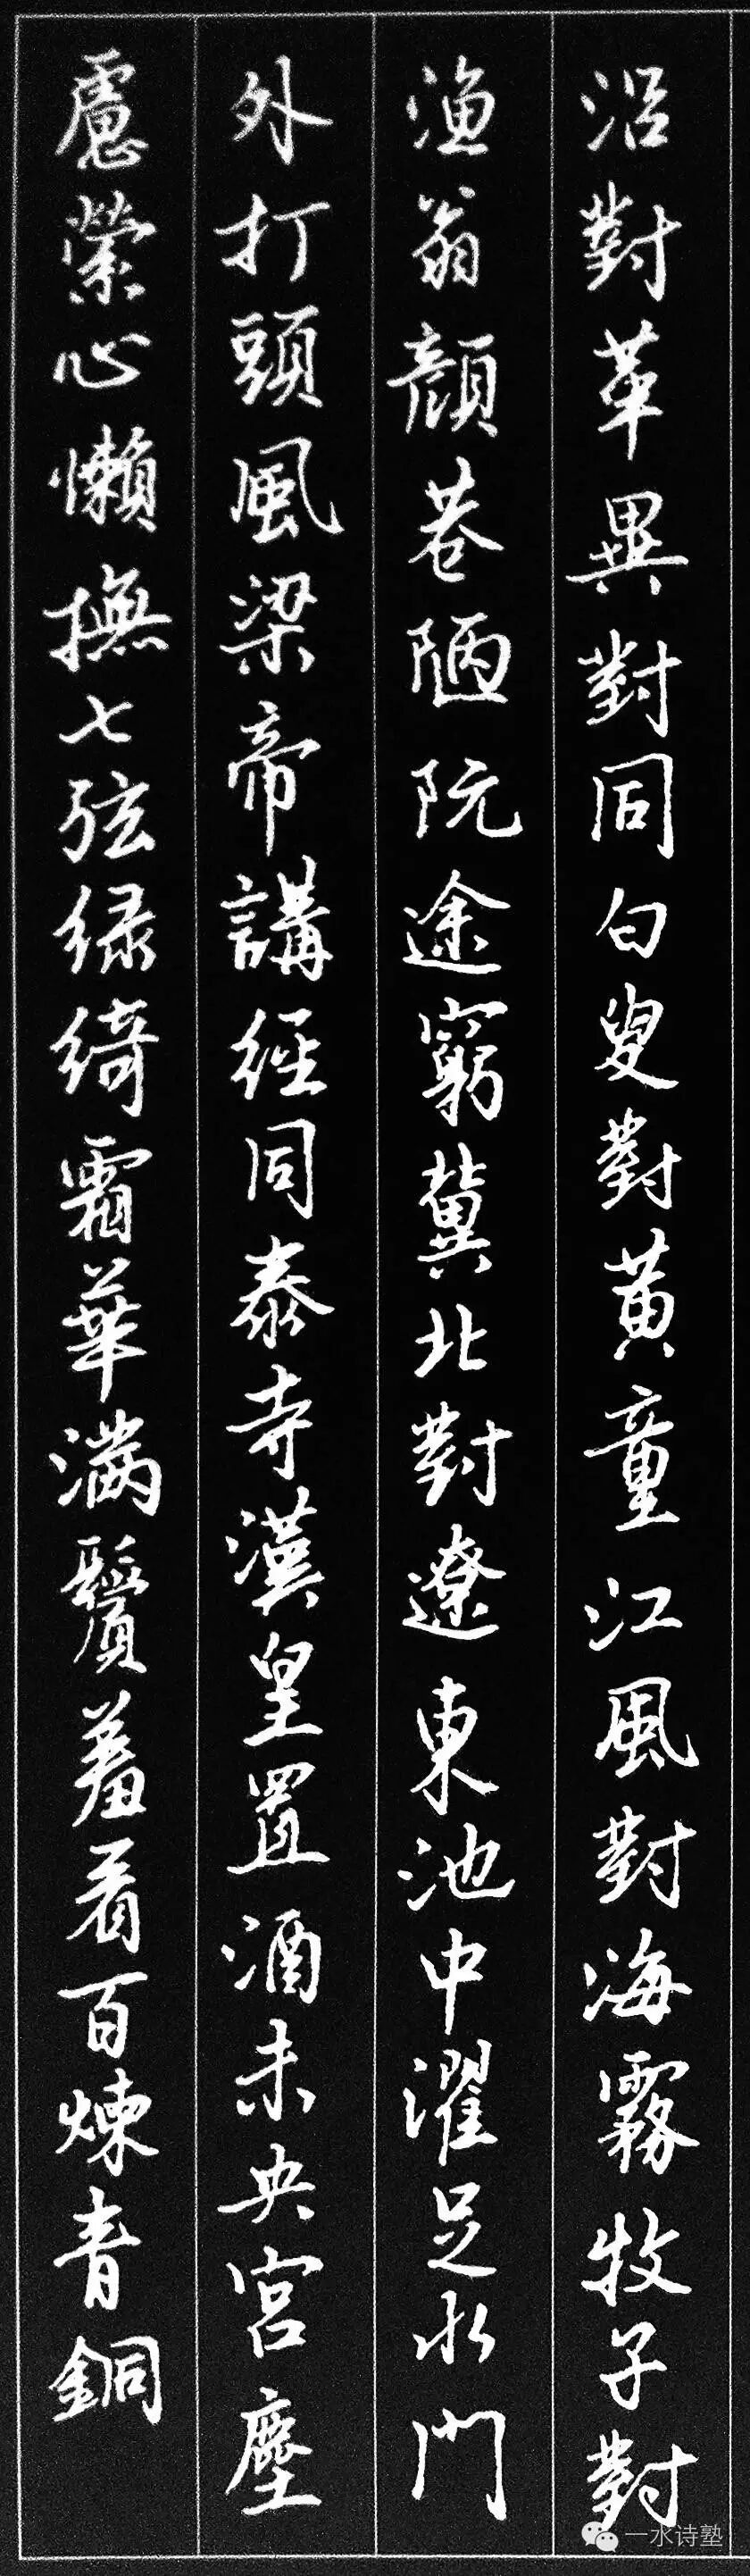 沿對革異對同白叟對黄童江風對海霧牧子對
漁翁顔巷陋阮途窮冀北對遼東池中濯足水門
外打頭風梁帝講經同泰寺漢皇置酒未央宫塵
慮縈心懶撫七弦緑綺霜華满鬢羞看百煉青銅
一水诗塾